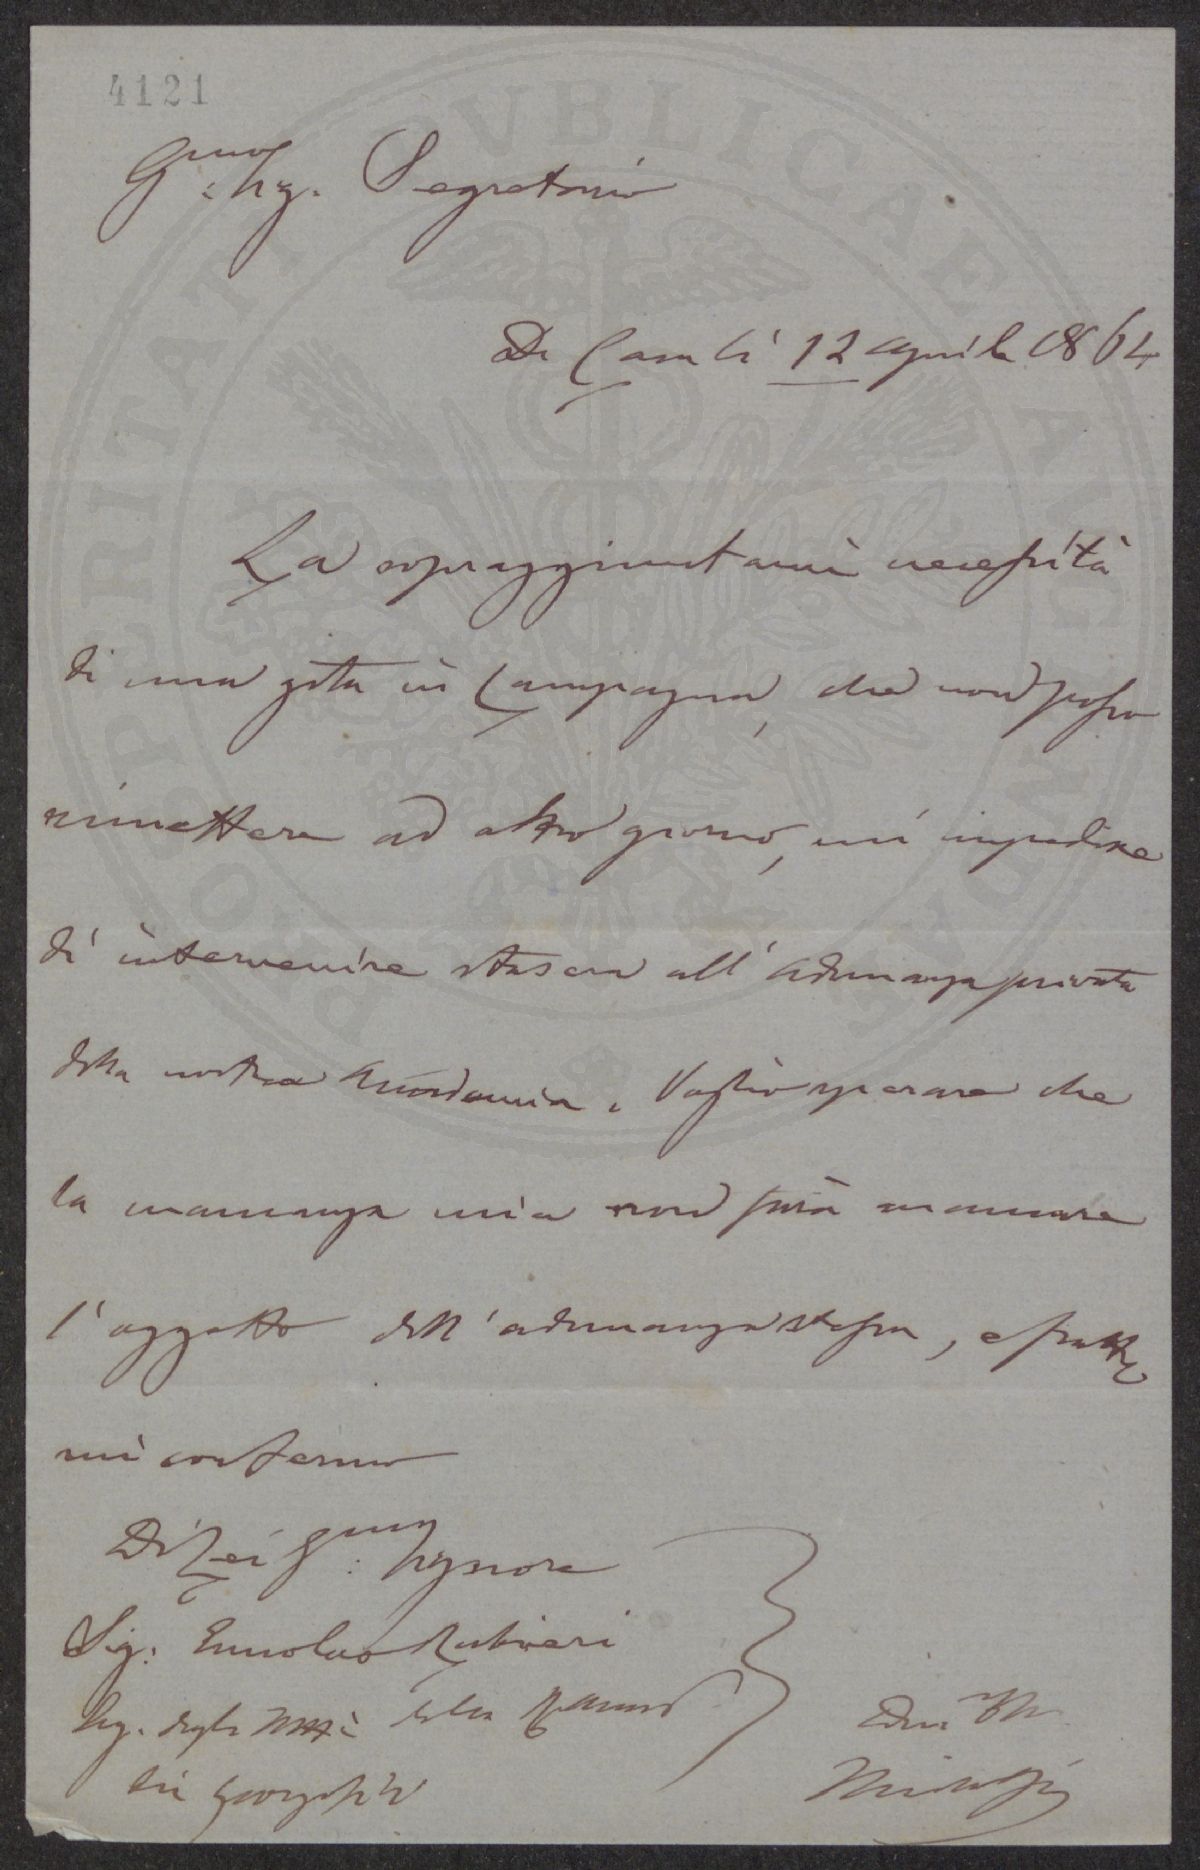 4121
PROSPERITATI PVBLICAE AVGENDAE
Sig. Segretario
Di Casa lì 12 aprile 1864
La sopraggiuntami necessità
di una gita in Campagna, che non posso
rimettere ad altro giorno, mi impedisce
di intervenire stasera all'adunanza privata
della nostra Accademia. Voglio sperare che
la mancanza mia non farà mancare
l'oggetto dell'adunanza stessa,
mi confermo
Di Lei Signore
Sig: Ermolao Rubieri
Seg. degli Atti della
dei Georgofili